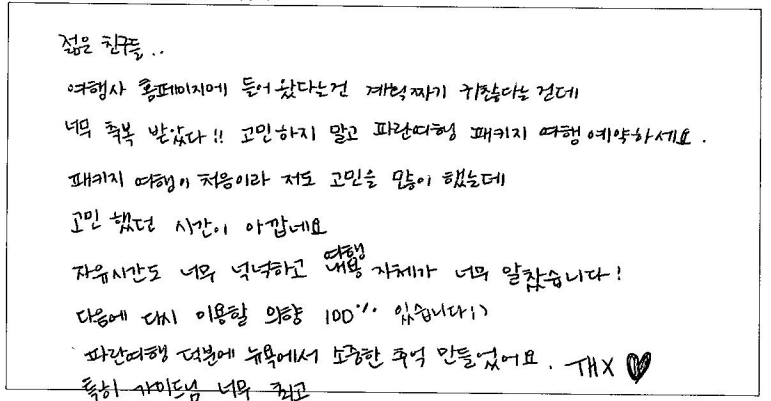 젊은 친구들..
여행사 홈페이지에 들어왔다는건 계획짜기 귀찮다는 건데
너무 축복 받았다!! 고민하지 말고 파란여행 패키지 여행 예약하세요.
패키지 여행이 처음이라 저도 고민을 많이 했는데
고민 했던 시간이 아깝네요
자유시간도 너무 넉넉하고 여행 내용 자체가 너무 알찼습니다!
다음에 다시 이용할 의향 100% 있습니다:)
파란여행 덕분에 뉴욕에서 소중한 추억 만들었어요. THX ♥
특히 가이드님 너무 최고